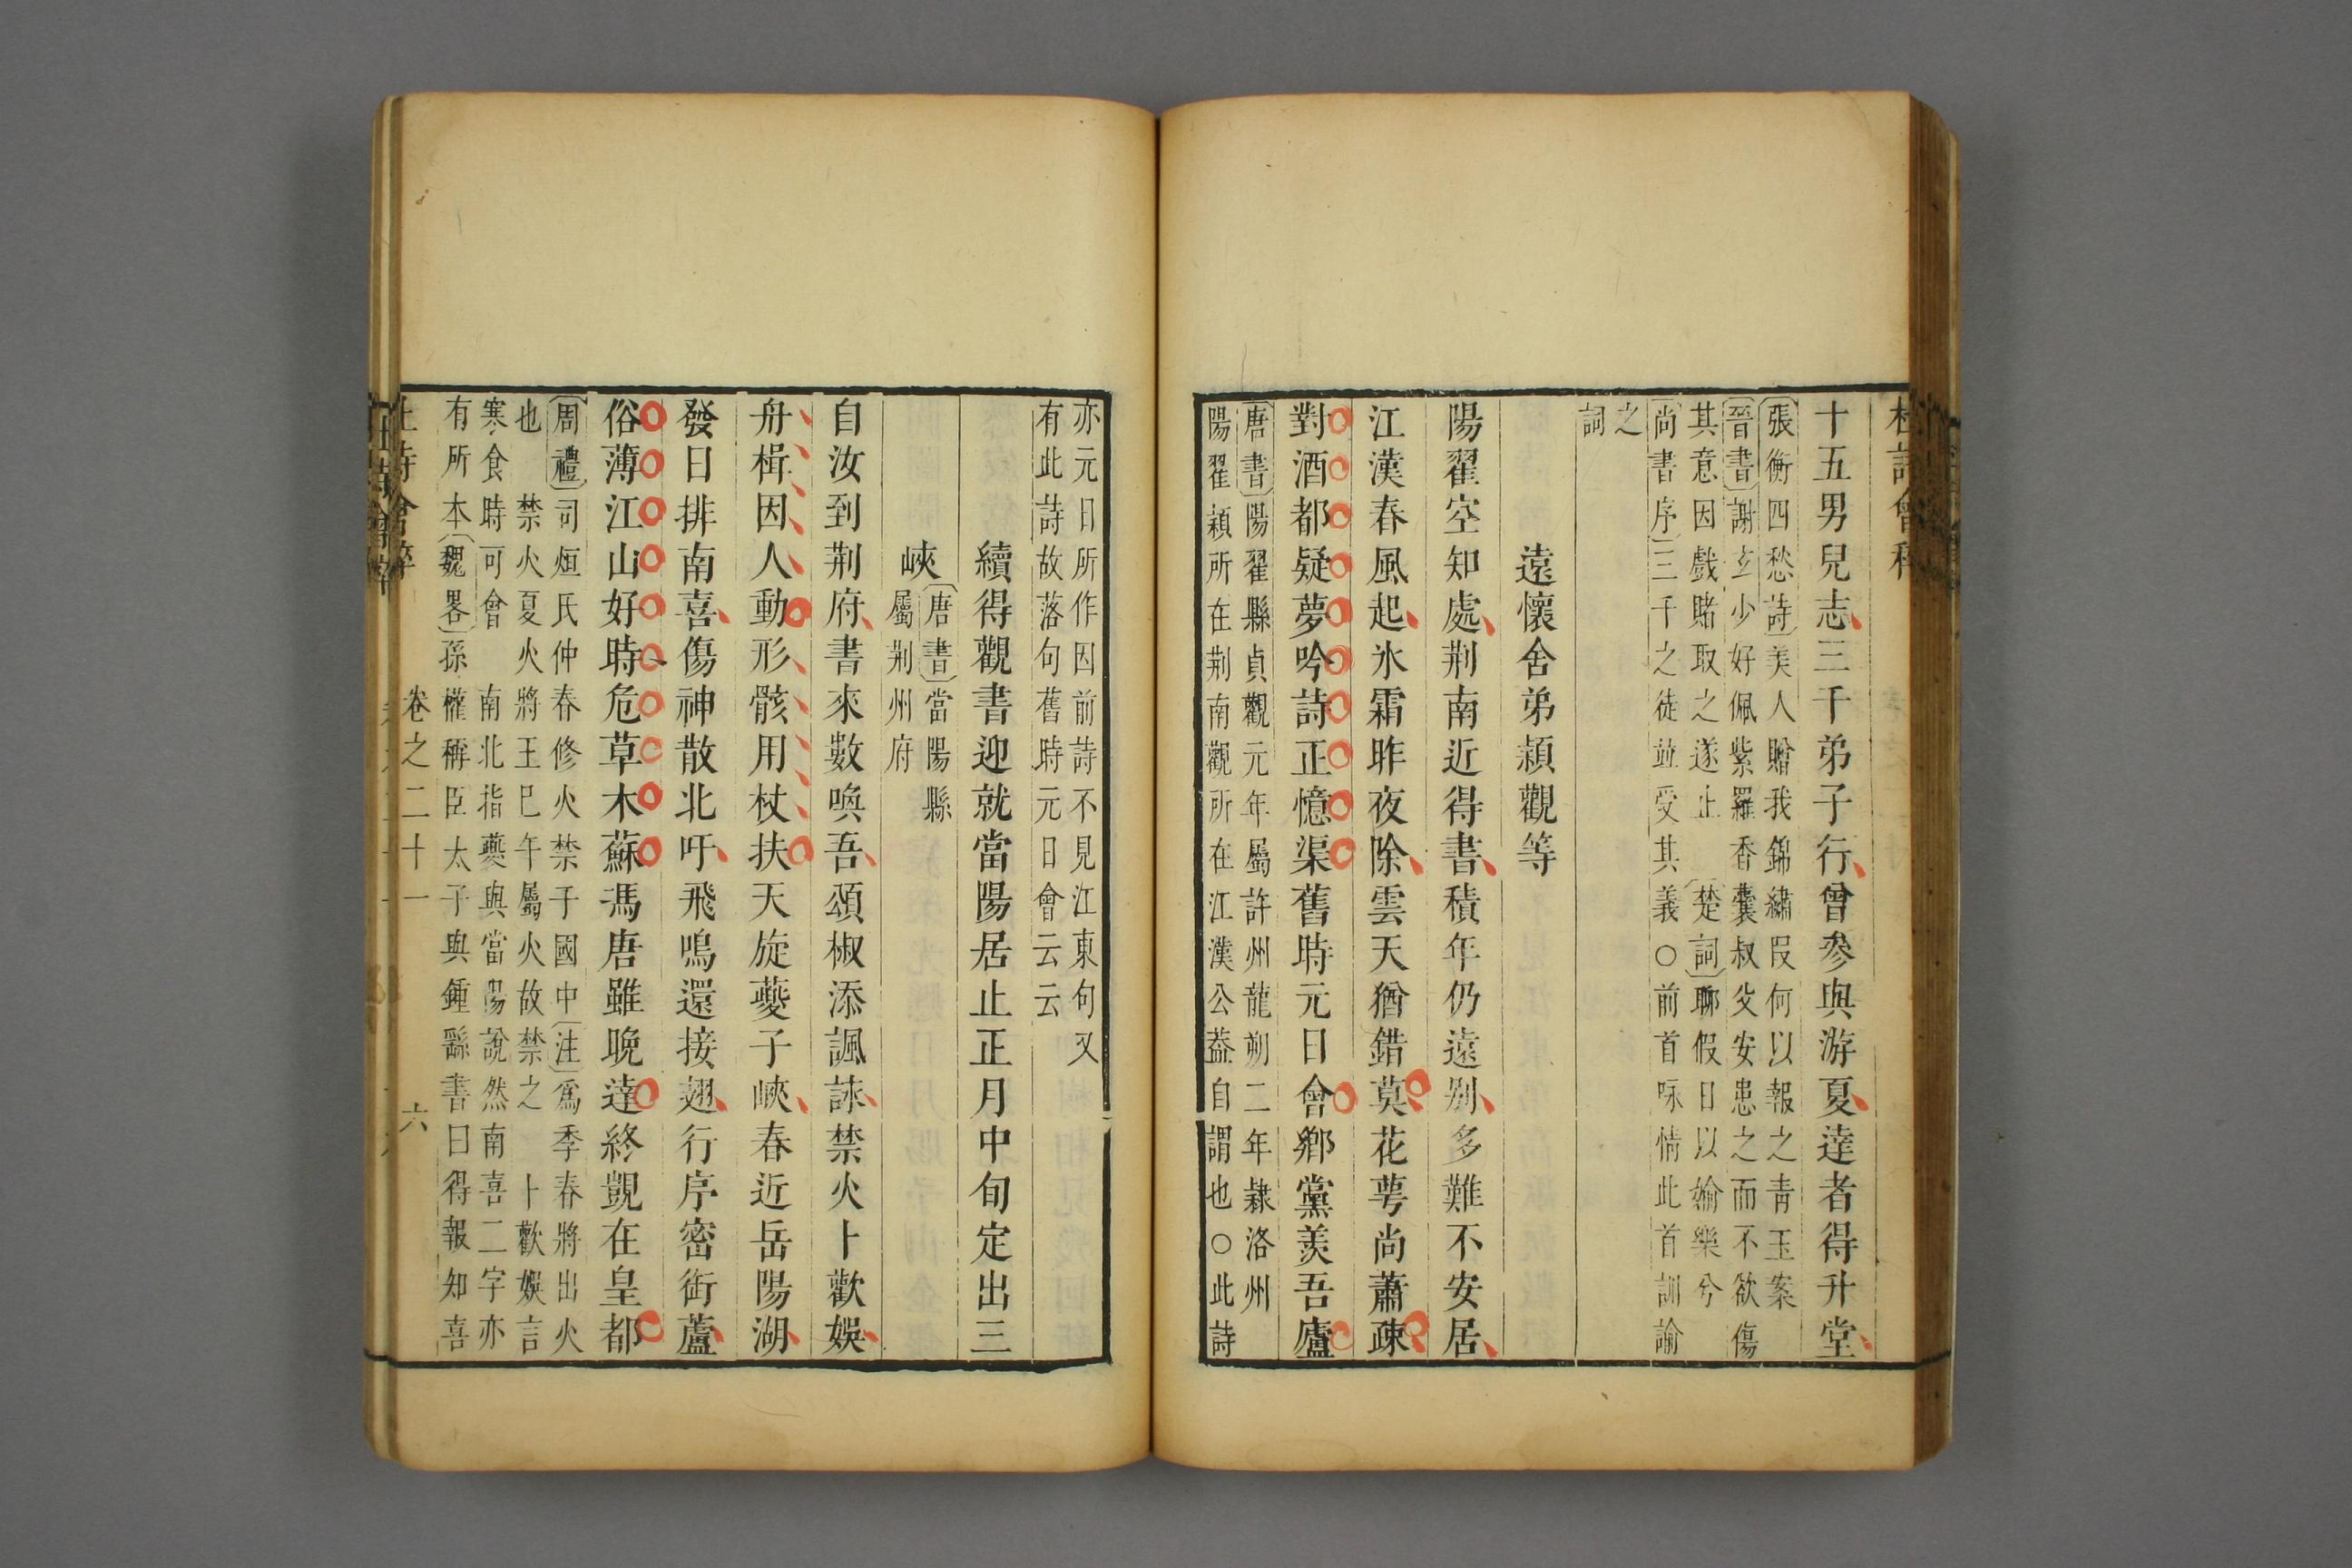 十五男兒志三千弟子行曾參與游夏達者得升堂
張衡四愁詩美人贈我錦繡叚何以報之青玉案
晉書謝玄少好佩紫羅香囊叔父安患之而不欲傷
其意因戲賭取之遂止 楚詞聊假日以媮樂兮
尚書序三千之徒並受其義○前首咏情此首訓諭
之
詞
遠懷舍弟頴觀等
陽翟空知處荆南近得書積年仍遠别多難不安居
江漢春風起氷霜昨夜除雲天猶錯莫花萼尚蕭疎
對酒都疑夢吟詩正憶渠舊時元日會鄉黨羨吾廬
唐書陽翟縣貞觀元年屬許州龍朔二年隷洛州
陽翟頴所在荆南觀所在江漢公葢自謂也○此詩
亦元日所作因前詩不見江東句又
有此詩故落句舊時元日會云云
續得觀書迎就當陽居止正月中旬定出三
峽
唐書當陽縣
屬荆州府
自汝到荆府書來數喚吾頌椒添諷詠禁火卜歡娛
舟楫因人動形骸用杖扶天旋夔子峽春近岳陽湖
發日排南喜傷神散北吁飛鳴還接翅行序密銜蘆
俗薄江山好時危草木蘇馮唐雖晚達終覬在皇都
周禮司烜氏仲春修火禁于國中注爲季春將出火
也 禁火夏火將王巳午屬火故禁之 卜歡娛言
寒食時可會 南北指夔與當陽說然南喜二字亦
有所本魏畧孫權稱臣太子與鍾繇書曰得報知喜
卷之二十一
六